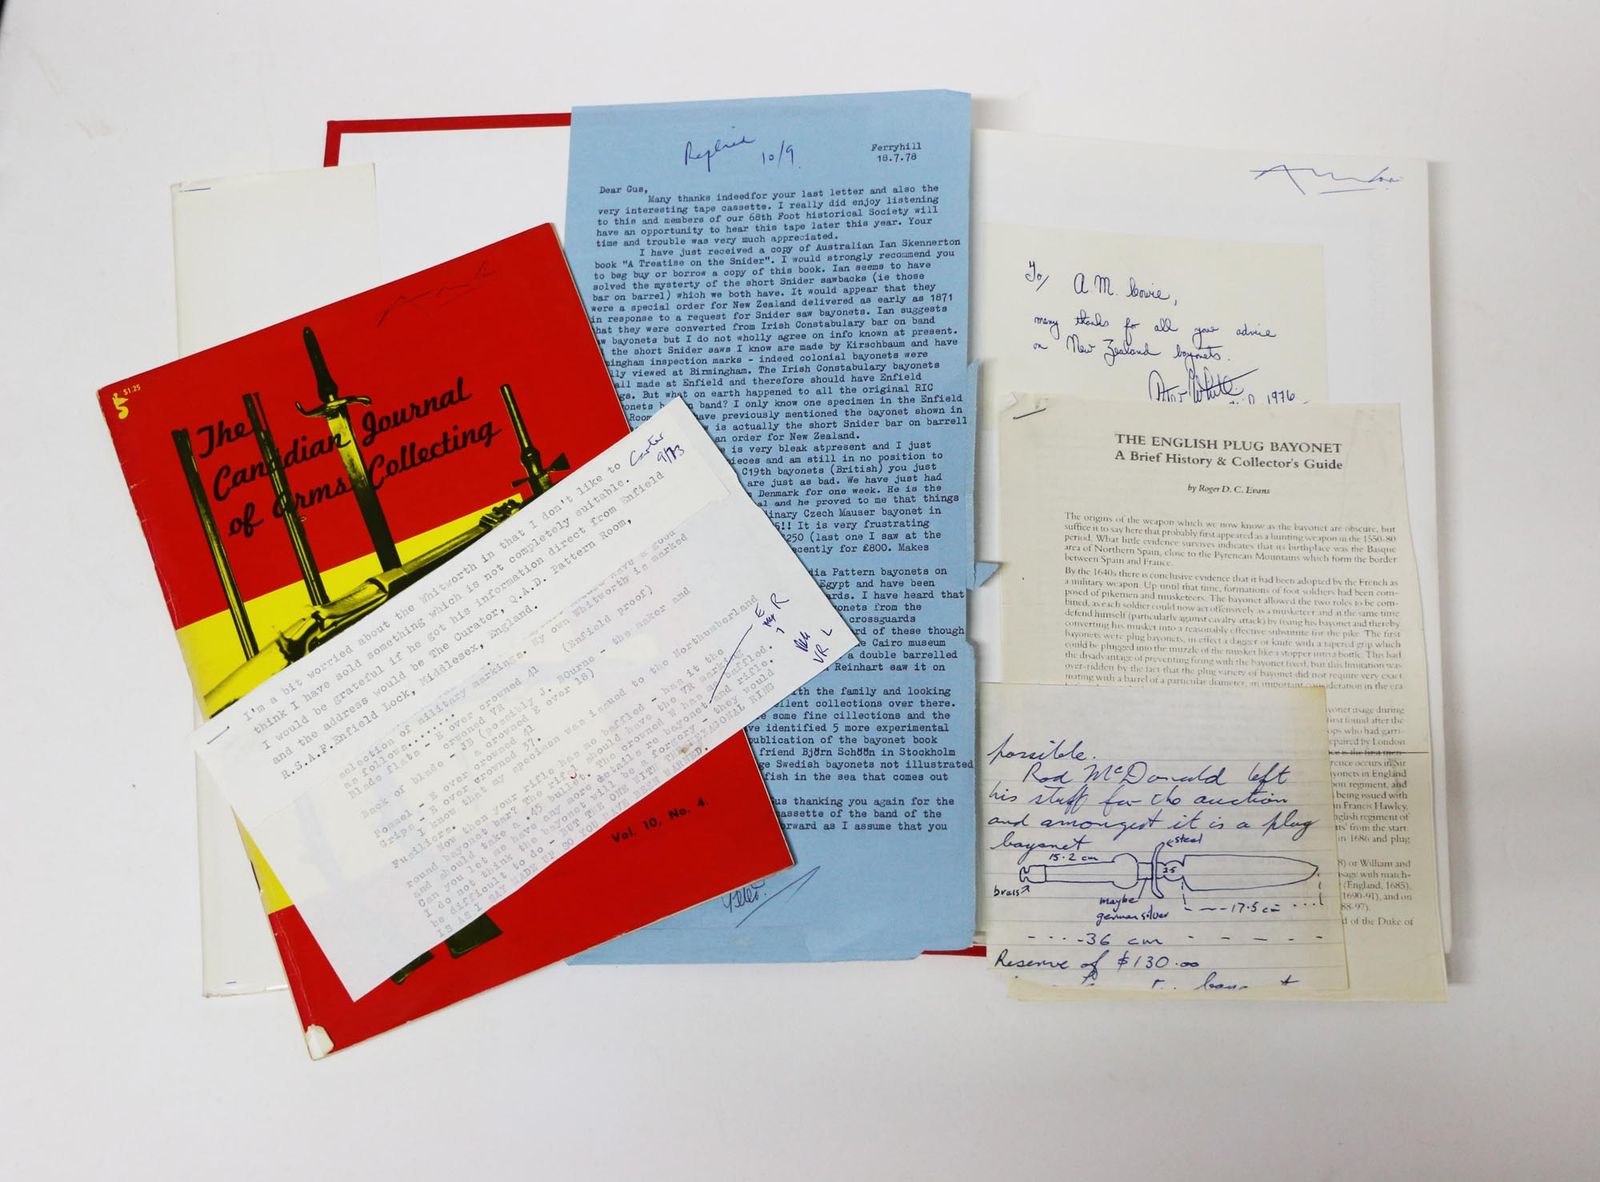 $1.25
The
Canadian Journal
of Arms Collecting
Vol. 10, No. 4.
Replied
10/9
Ferryhill
18.7.78
Dear Gus,
Many thanks indeedfor your last letter and also the
very interesting tape cassette. I really did enjoy listening
to this and members of our 68th Foot historical Society will
have an opportunity to hear this tape later this year. Your
time and trouble was very much appreciated.
I have just received a copy of Australian Ian Skennerton
book "A Treatise on the Snider". I would strongly recommend you
to beg buy or borrow a copy of this book. Ian seems to have
solved the mysterty of the short Snider sawbacks (ie those
bar on barrel) which we both have. It would appear that they
were a special order for New Zealand delivered as early as 1871
in response to a request for Snider saw bayonets. Ian suggests
that they were converted from Irish Constabulary bar on band
bayonets but I do not wholly agree on info known at present.
the short Snider saws I know are made by Kirschbaum and have
mingham inspection marks - indeed colonial bayonets were
lly viewed at Birmingham. The Irish Constabulary bayonets
all made at Enfield and therefore should have Enfield
gs. But what on earth happened to all the original RIC
onets band? I only know one specimen in the Enfield
Room ave previously mentioned the bayonet shown in
is actually the short Snider bar on barrell
an order for New Zealand.
e is very bleak atpresent and I just
ieces and am still in no position to
C19th bayonets (British) you just
are just as bad. We have just had
Denmark for one week. He is the
al and he proved to me that things
inary Czech Mauser bayonet in
!! It is very frustrating
250 (last one I saw at the
ecently for £800. Makes
dia Pattern bayonets on
Egypt and have been
ards. I have heard that
onets from the
crossguards
rd of these though
e Cairo museum
a double barrelled
Reinhart saw it on
th the family and looking
llent collections over there.
e some fine cillections and the
ve identified 5 more experimental
publication of the bayonet book
friend Björn Schöön in Stockholm
ge Swedish bayonets not illustrated
fish in the sea that comes out
us thanking you again for the
assette of the band of the
orward as I assume that you
Peter.
Carter
9/73
I'm a bit worried about the Whitworth in that I don't like to
think I have sold something which is not completely suitable.
I would be grateful if he got his information direct from Enfield
and the address would be The Curator, Q.A.D. Pattern Room,
R.S.A.F. Enfield Lock, Middlesex, England.
selection of military markings. My own Whitworth is marked
as follows........
Blade flats - E over crowned 41 (Enfield proof)
crowned VR
Back of blade - JB (possibly J. Bourne - the maker and
a crowned E over 18)
Pommel - E over crowned 41
Grips - E over crowned 37.
I know that my specimen was issued to the Northumberland
Fusiliers.
Now then your rifle has me baffled - has it the
round bayonet bar? The rifle should have the VR marking
and should take a .45 bullet. The crowned E has me baffled.
Can you let me have any more details re bayonet and rifle.
I do not think the bayonet will be a forgery - they would
be difficult to do - BUT THE ONE WITH TRADITIONAL RING
IS AS I MAY MADE UP SO YOU HAVE BEEN WARNED.
E
R
VR L
To/ A M. Cowie,
many thanks for all your advice
on New Zealand bayonets.
1976
THE ENGLISH PLUG BAYONET
A Brief History & Collector's Guide
by Roger D. C. Evans
The origins of the weapon which we now know as the bayonet are obscure, but
suffice it to say here that probably first appeared as a hunting weapon in the 1550-80
period. What little evidence survives indicates that its birthplace was the Basque
area of Northern Spain, close to the Pyrenean Mountains which form the border
between Spain and France.
By the 1640s there is conclusive evidence that it had been adopted by the French as
a military weapon. Up until that time, formations of foot soldiers had been com-
posed of pikemen and musketeers. The bayonet allowed the two roles to be com-
bined, as each soldier could now act offensively as a musketeer and at the same time
defend himself (particularly against cavalry attack) by fixing his bayonet and thereby
converting his musket into a reasonably effective substitute for the pike. The first
bayonets were plug bayonets, in effect a dagger or knife with a tapered grip which
could be plugged into the muzzle of the musket like a stopper into a bottle. This had
the disadvantage of preventing firing with the bayonet fixed, but this limitation was
over-ridden by the fact that the plug variety of bayonet did not require very exact
mating with a barrel of a particular diameter, an important consideration in the era
yonet usage during
first found after the
ops who had garri-
epaired by London
ce is the first men-
rence occurs in Sir
yonets in England
on regiment, and
being issued with
n Francis Hawley,
nglish regiment of
ts' from the start.
in 1686 and plug
8) or William and
sage with match-
(England, 1685),
1690-91), and on
88-97).
d of the Duke of
possible.
Rod McDonald left
his stuff for the auction
and amongst it is a plug
bayonet
steel
15.2 cm
2.5
brass
maybe
german silver
17.5 cm
36 cm
Reserve of $130.00